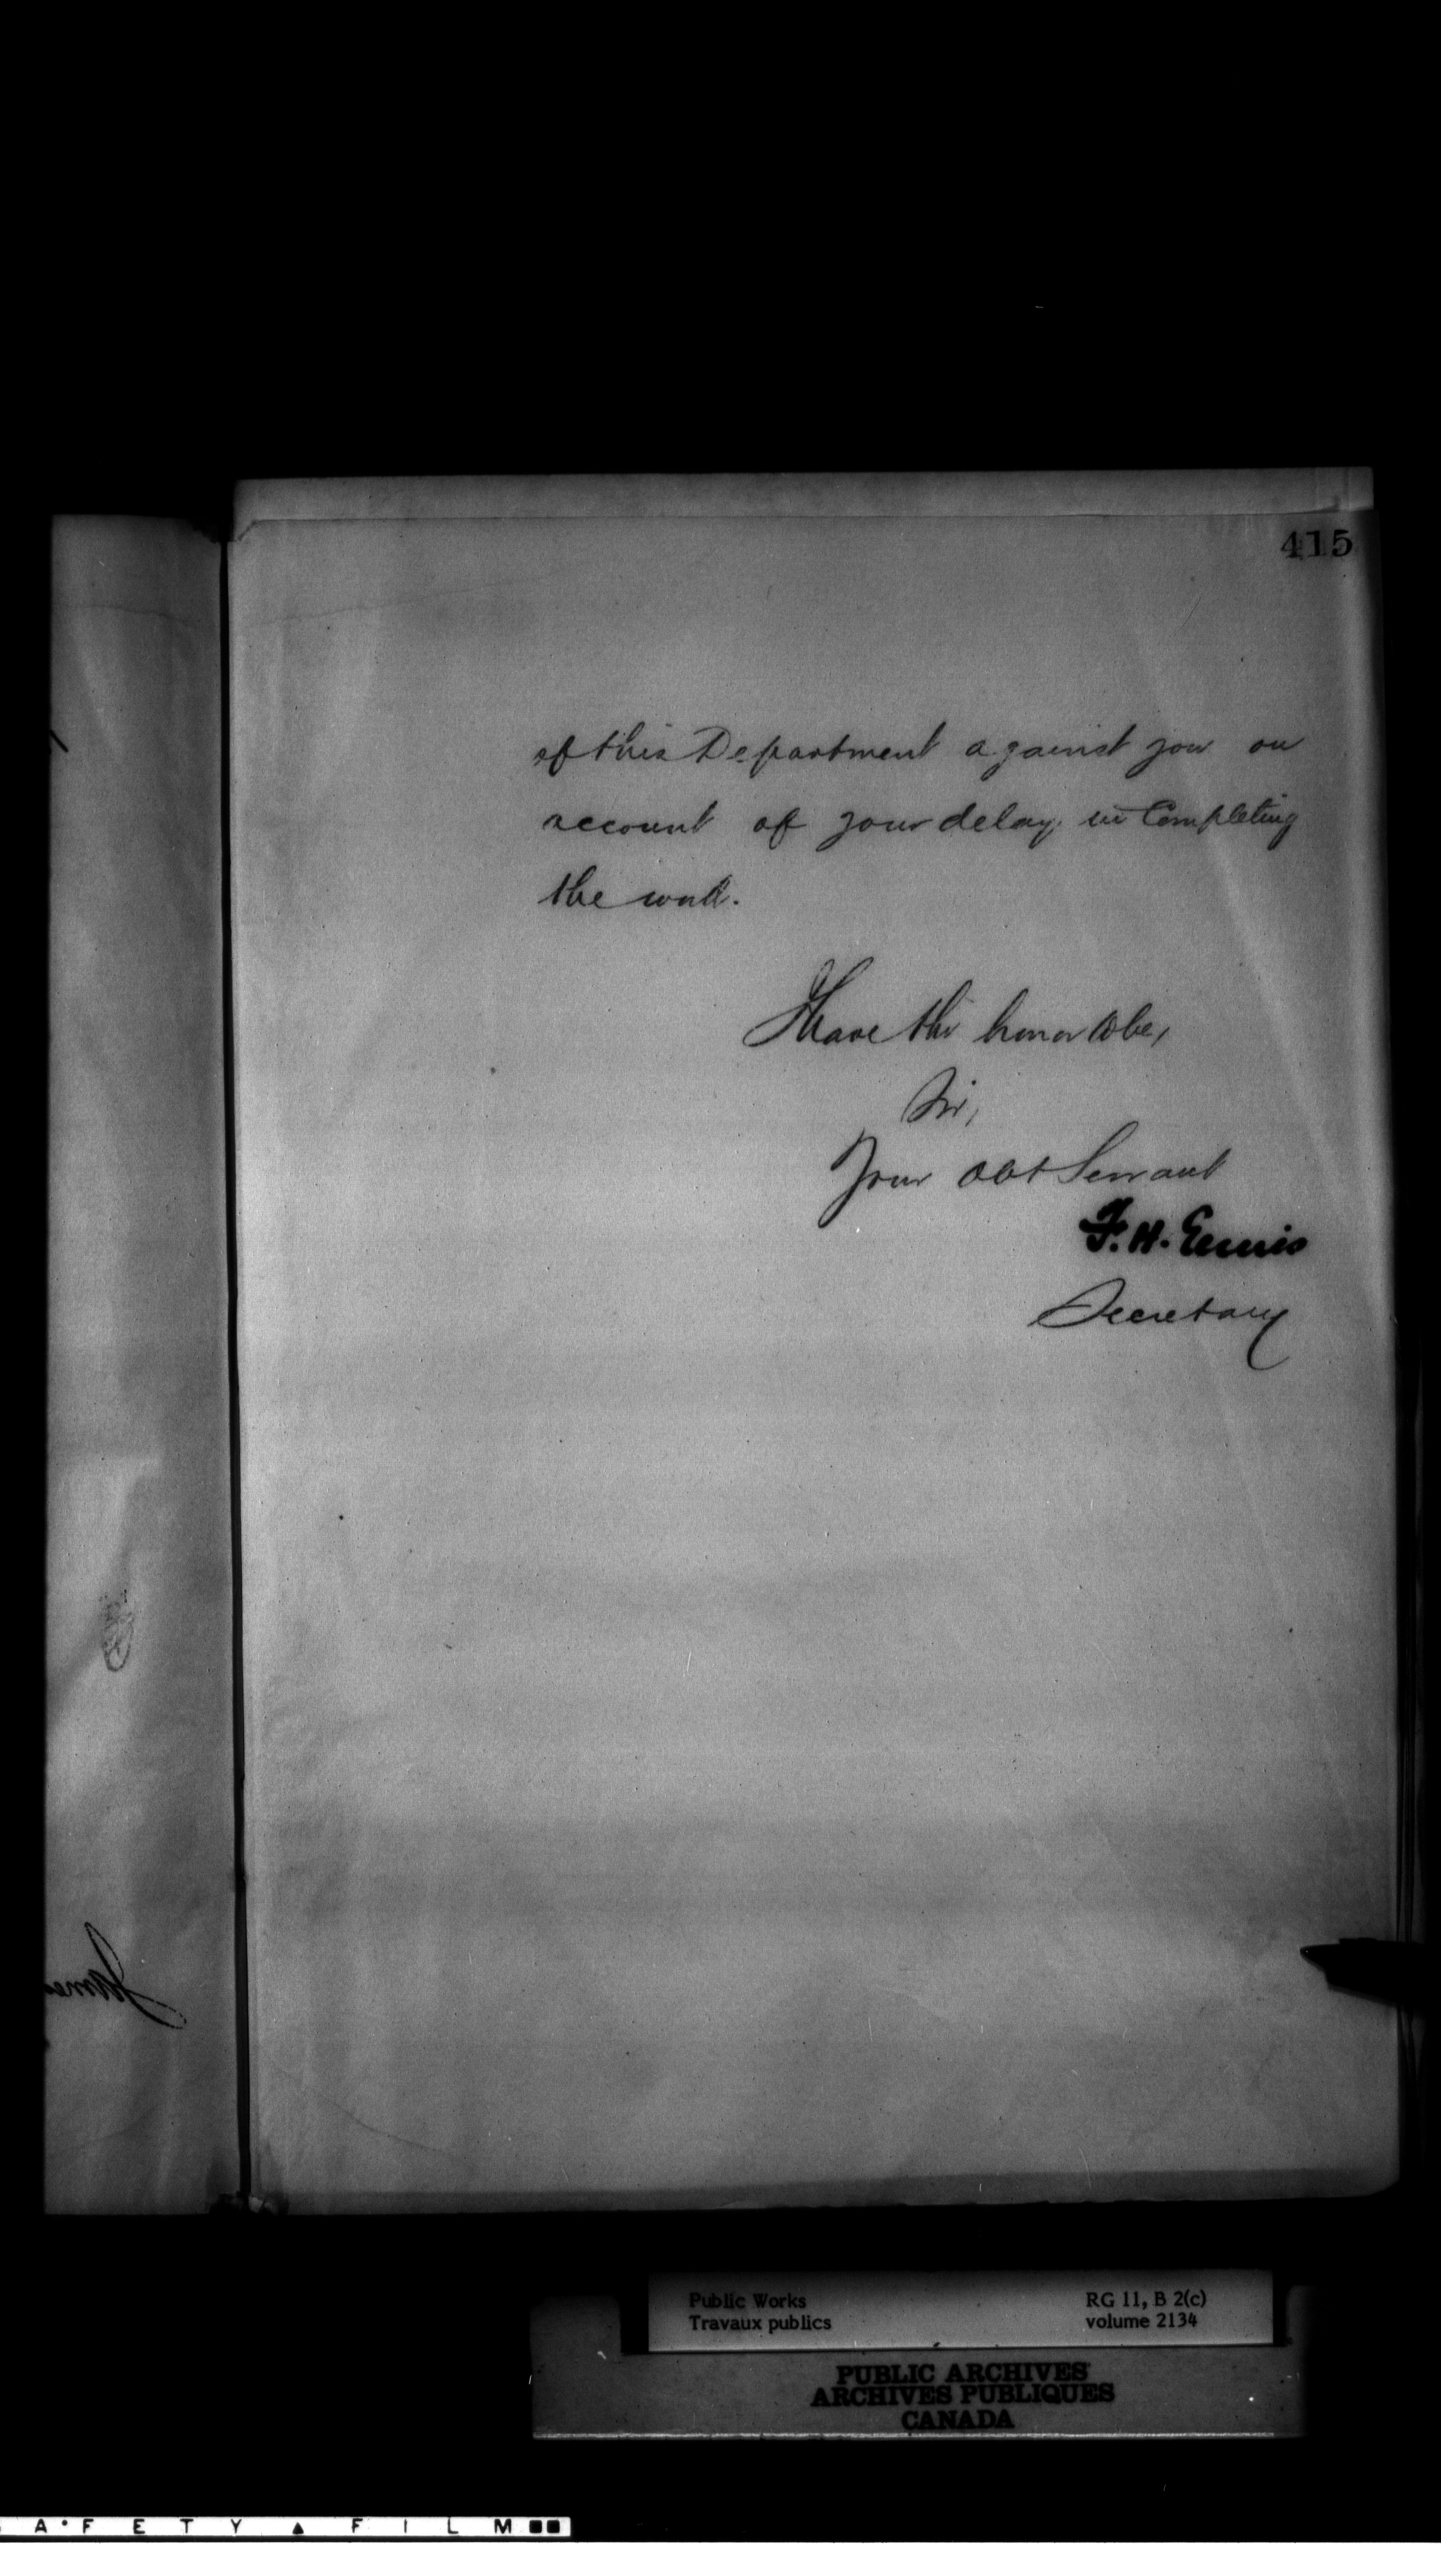 415
of this Department against you on
account of your delay in Completing
the work.
I have the honor to be,
Sir,
Your Obt Servant
F. H. Ennis
Secretary
James
Public Works
Travaux publics
RG 11, B 2(c)
volume 2134
PUBLIC ARCHIVES
ARCHIVES PUBLIQUES
CANADA
A • F E T Y ▲ F I L M ■■